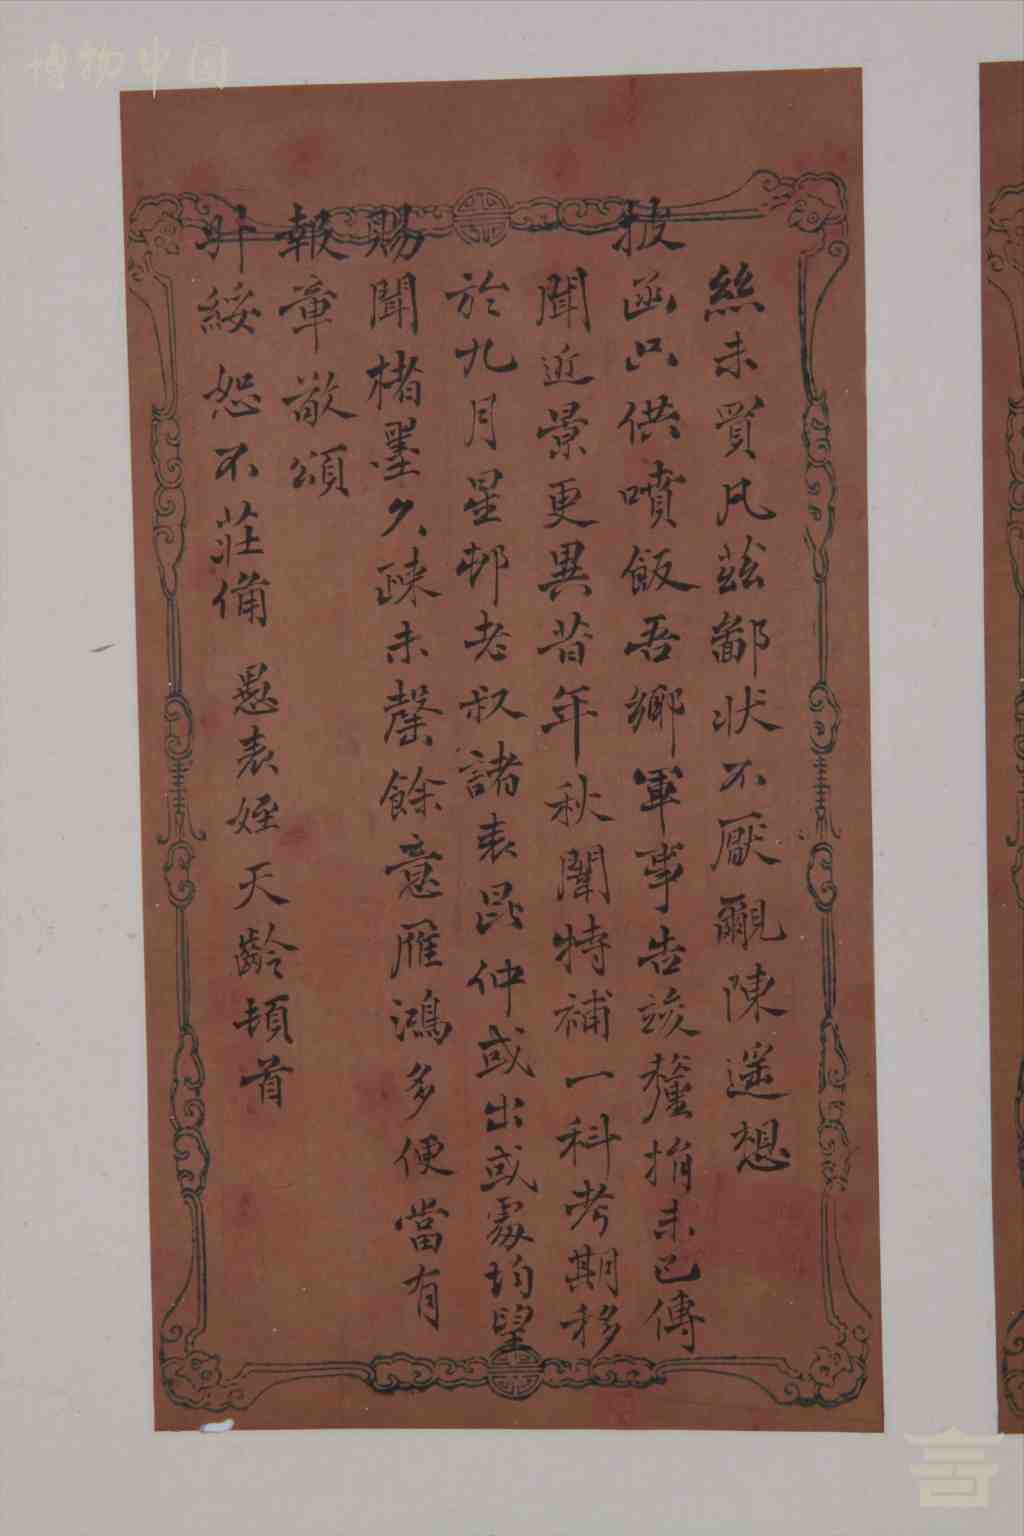 絲未買凡茲鄙狀不厭覼陳遥想
披函只供噴飯吾鄉軍事告竣釐捐未已傳
聞近景更異昔年秋闈特補一科考期移
於九月星邨老叔諸表昆仲或出或處均望
賜聞楮墨久疎未罄餘意雁鴻多便當有
報章敬頌
升綏恕不莊備 愚表姪天齡頓首
博物中国